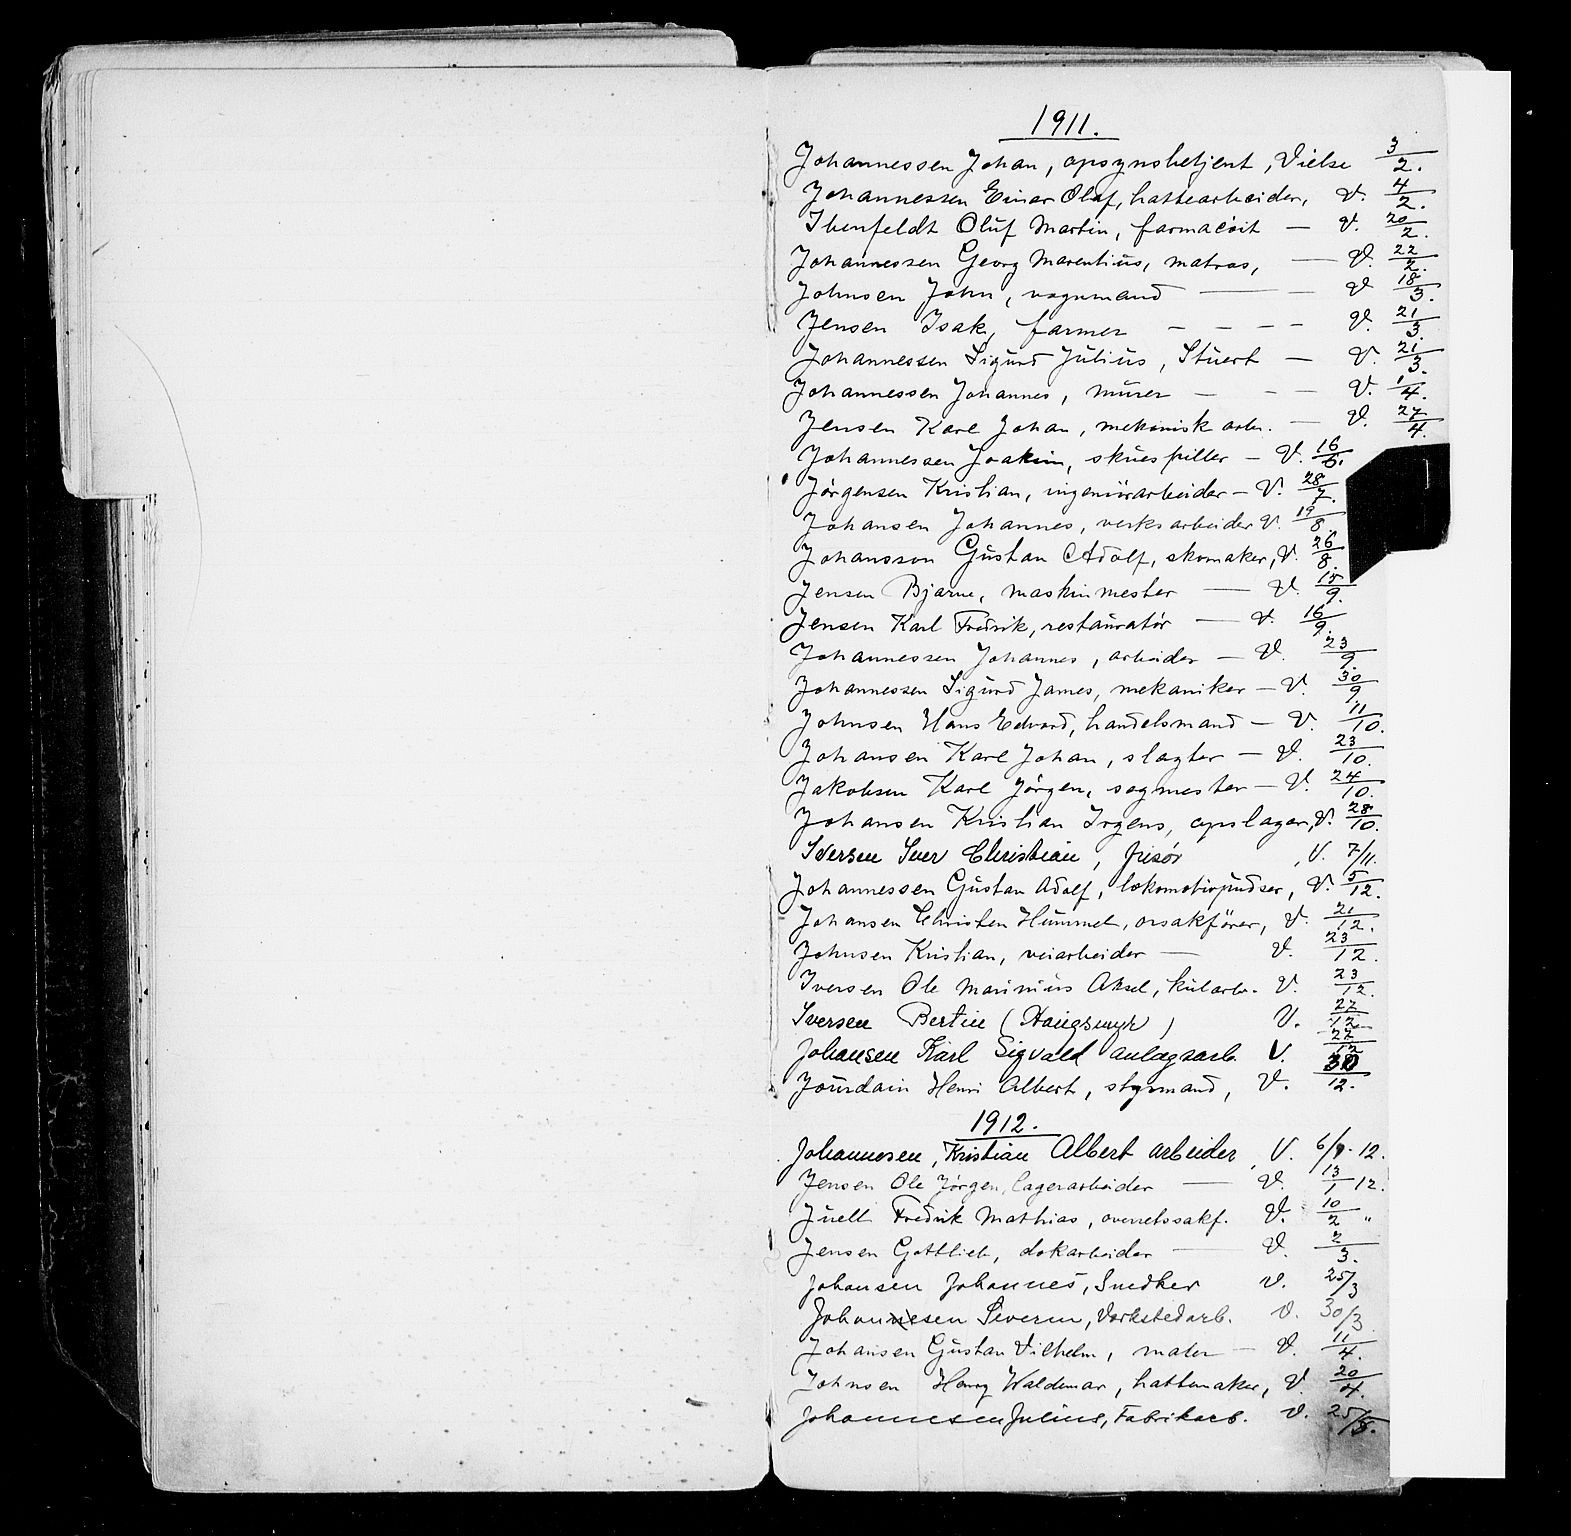 1911.
Johannessen Johan, opsynsbetjent, Vielse 3/2.
Johannessen Einar Olaf, hattearbeider, V. 4/2.
Ibenfeldt Oluf Martin, farmacöit — V. 20/2.
Johannessen Georg Marentius, matros, — V. 22/2.
Johnsen John, vognmand — — V 18/3.
Jensen Isak, farmer — — — — V. 21/3.
Johannessen Sigurd Julius, Stuert — V. 21/3.
Johannessen Johannes, murer — — — V. 1/4.
Jensen Karl Johan, mekanisk arb. — V. 27/4.
Johannessen Joakim, skuespiller — V. 16/6.
Jørgensen Kristian, ingeniörarbeider — V. 28/7.
Johansen Johannes, verksarbeider V. 19/8.
Johansson Gustav Adolf, skomaker, V. 26/8.
Jensen Bjarne, maskinmester — V. 15/9.
Jensen Karl Fredrik, restauratør — V. 16/9.
Johannessen Johannes, arbeider — V. 23/9.
Johannessen Sigurd James, mekaniker — V. 30/9.
Johnsen Hans Edvard, handelsmand — V. 11/10.
Johansen Karl Johan, slagter — V. 23/10.
Jakobsen Karl Jörgen, sagmester — V. 24/10.
Johansen Kristian Irgens, opslager, V. 28/10.
Iversen Iver Christian, frisør , V. 7/11.
Johannessen Gustav Adolf, lokomotivpudser, V. 5/12.
Johansen Christen Hummel, orsakförer, V. 21/12.
Johnsen Kristian, veiarbeider — V. 23/12.
Iversen Ole Marinius Aksel, kularb. V. 23/12.
Iversen Bertin (Haugsmyr) V. 27/12
Johansen Karl Sigvald anlægsarb. V. 27/12
Jourdain Henri Albert, styrmand, V. 30/12.
1912.
Johannesen, Kristian Albert arbeider, V. 6/1-12.
Jensen Ole Jörgen, lagerarbeider — V. 13/1 12.
Juell Fredrik Mathias, overretssakf. V. 10/2 "
Jensen Gottlieb, dokarbeider — V. 2/3.
Johansen Johannes, Snedker V. 25/3
Johannesen Severin, Verkstedarb. V. 30/3
Johansen Gustav Vilhelm, maler — V. 11/4.
Johnsen Henry Waldemar, hattemaker, V. 20/4.
Johannessen Julius, Fabrikarb. V. 25/5.